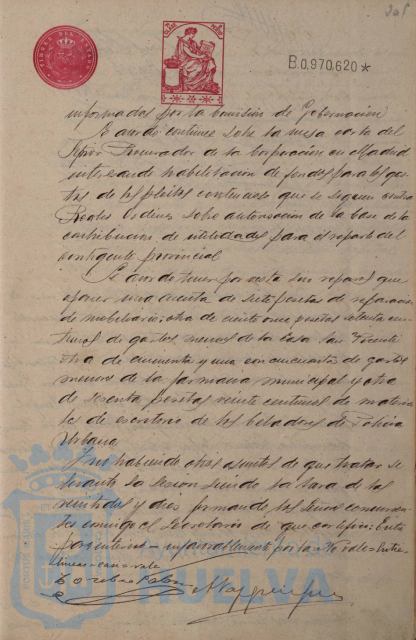 B.0.970.620*
informados por la Comisión de Gobernación
Se acordó continúe sobre la mesa carta del
Señor Procurador de la Corporación en Madrid
interesando habilitación de fondos para los gas-
tos de los pleitos contencioso que se siguen contra
Reales Ordenes sobre autorización de la base de la
contribución de utilidades para el reparto del
contingente provincial
Se acordó tener por vista sin reparos que
oponer una cuenta de siete pesetas de reparación
de mobiliario; otra de ciento once pesetas setenta cen-
timos de gastos menores de la Casa San Vicente
otra de cincuenta y una con cincuenta de gastos
menores de la farmacia municipal y otra
de sesenta pesetas veinte centimos de materia-
les de escritorio de los celadores de Policía
Urbana.
Y no habiendo otros asuntos de que tratar se
levantó la sesión siendo la hora de las
veintidos y diez firmando los Señores concurren-
tes conmigo el Secretario de que certifico: Entre
parentesis - informados por la - No vale = Entre
lineas = can = vale
HUELVA